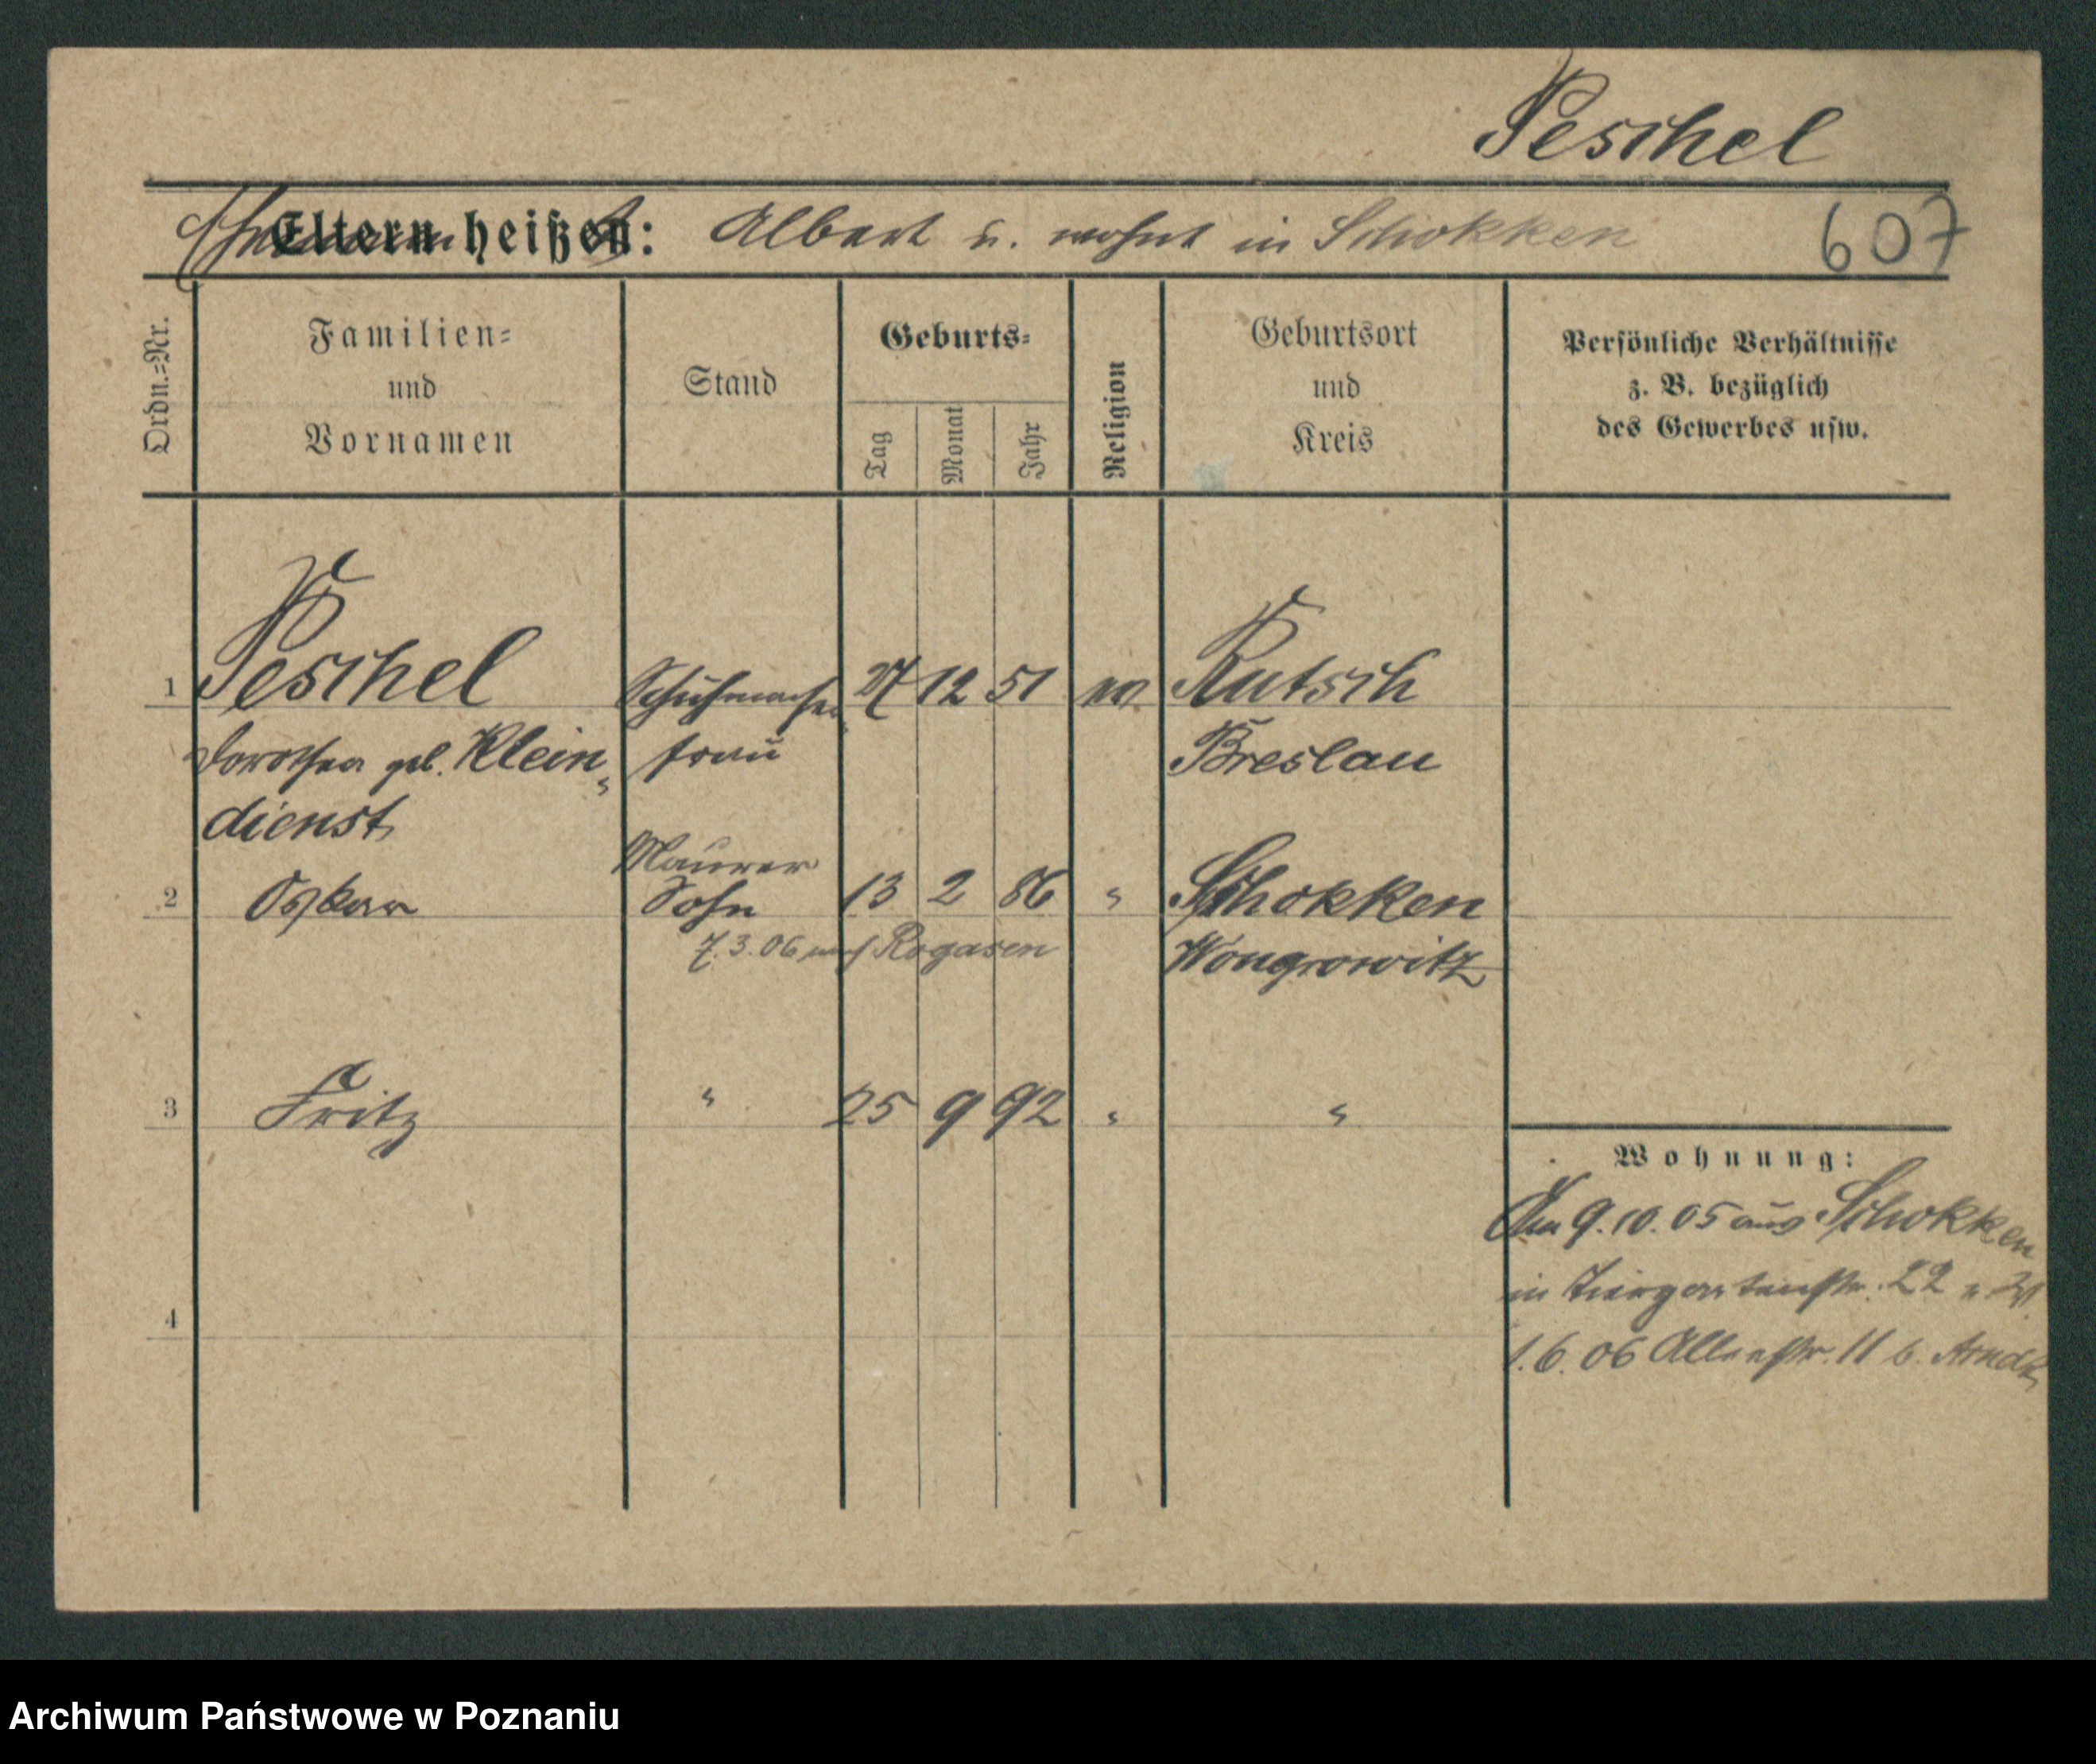 Peschel
Ehemann heißt: Albert u. wohnt in Schokken
607
Ordn.=Nr.
Familien=
und
Vornamen
Stand
Geburts=
Tag
Monat
Jahr
Religion
Geburtsort
und
Kreis
Persönliche Verhältnisse
z. B. bezüglich
des Gewerbes usw.
1 Peschel Schuhmacher 27 12 51 ev. Kutsch
Dorothea geb. Klein= frau Breslau
dienst
Maurer
2 Oskar Sohn 13 2 86 " Schokken
7.3.06 nach Rogasen Wongrowitz
3 Fritz " 25 9 92 " "
Wohnung:
Am 9.10.05 aus Schokken
in Tiergartenstr. 22
4
1.6.06 Alleestr. 11 b. Arndt
Archiwum Państwowe w Poznaniu